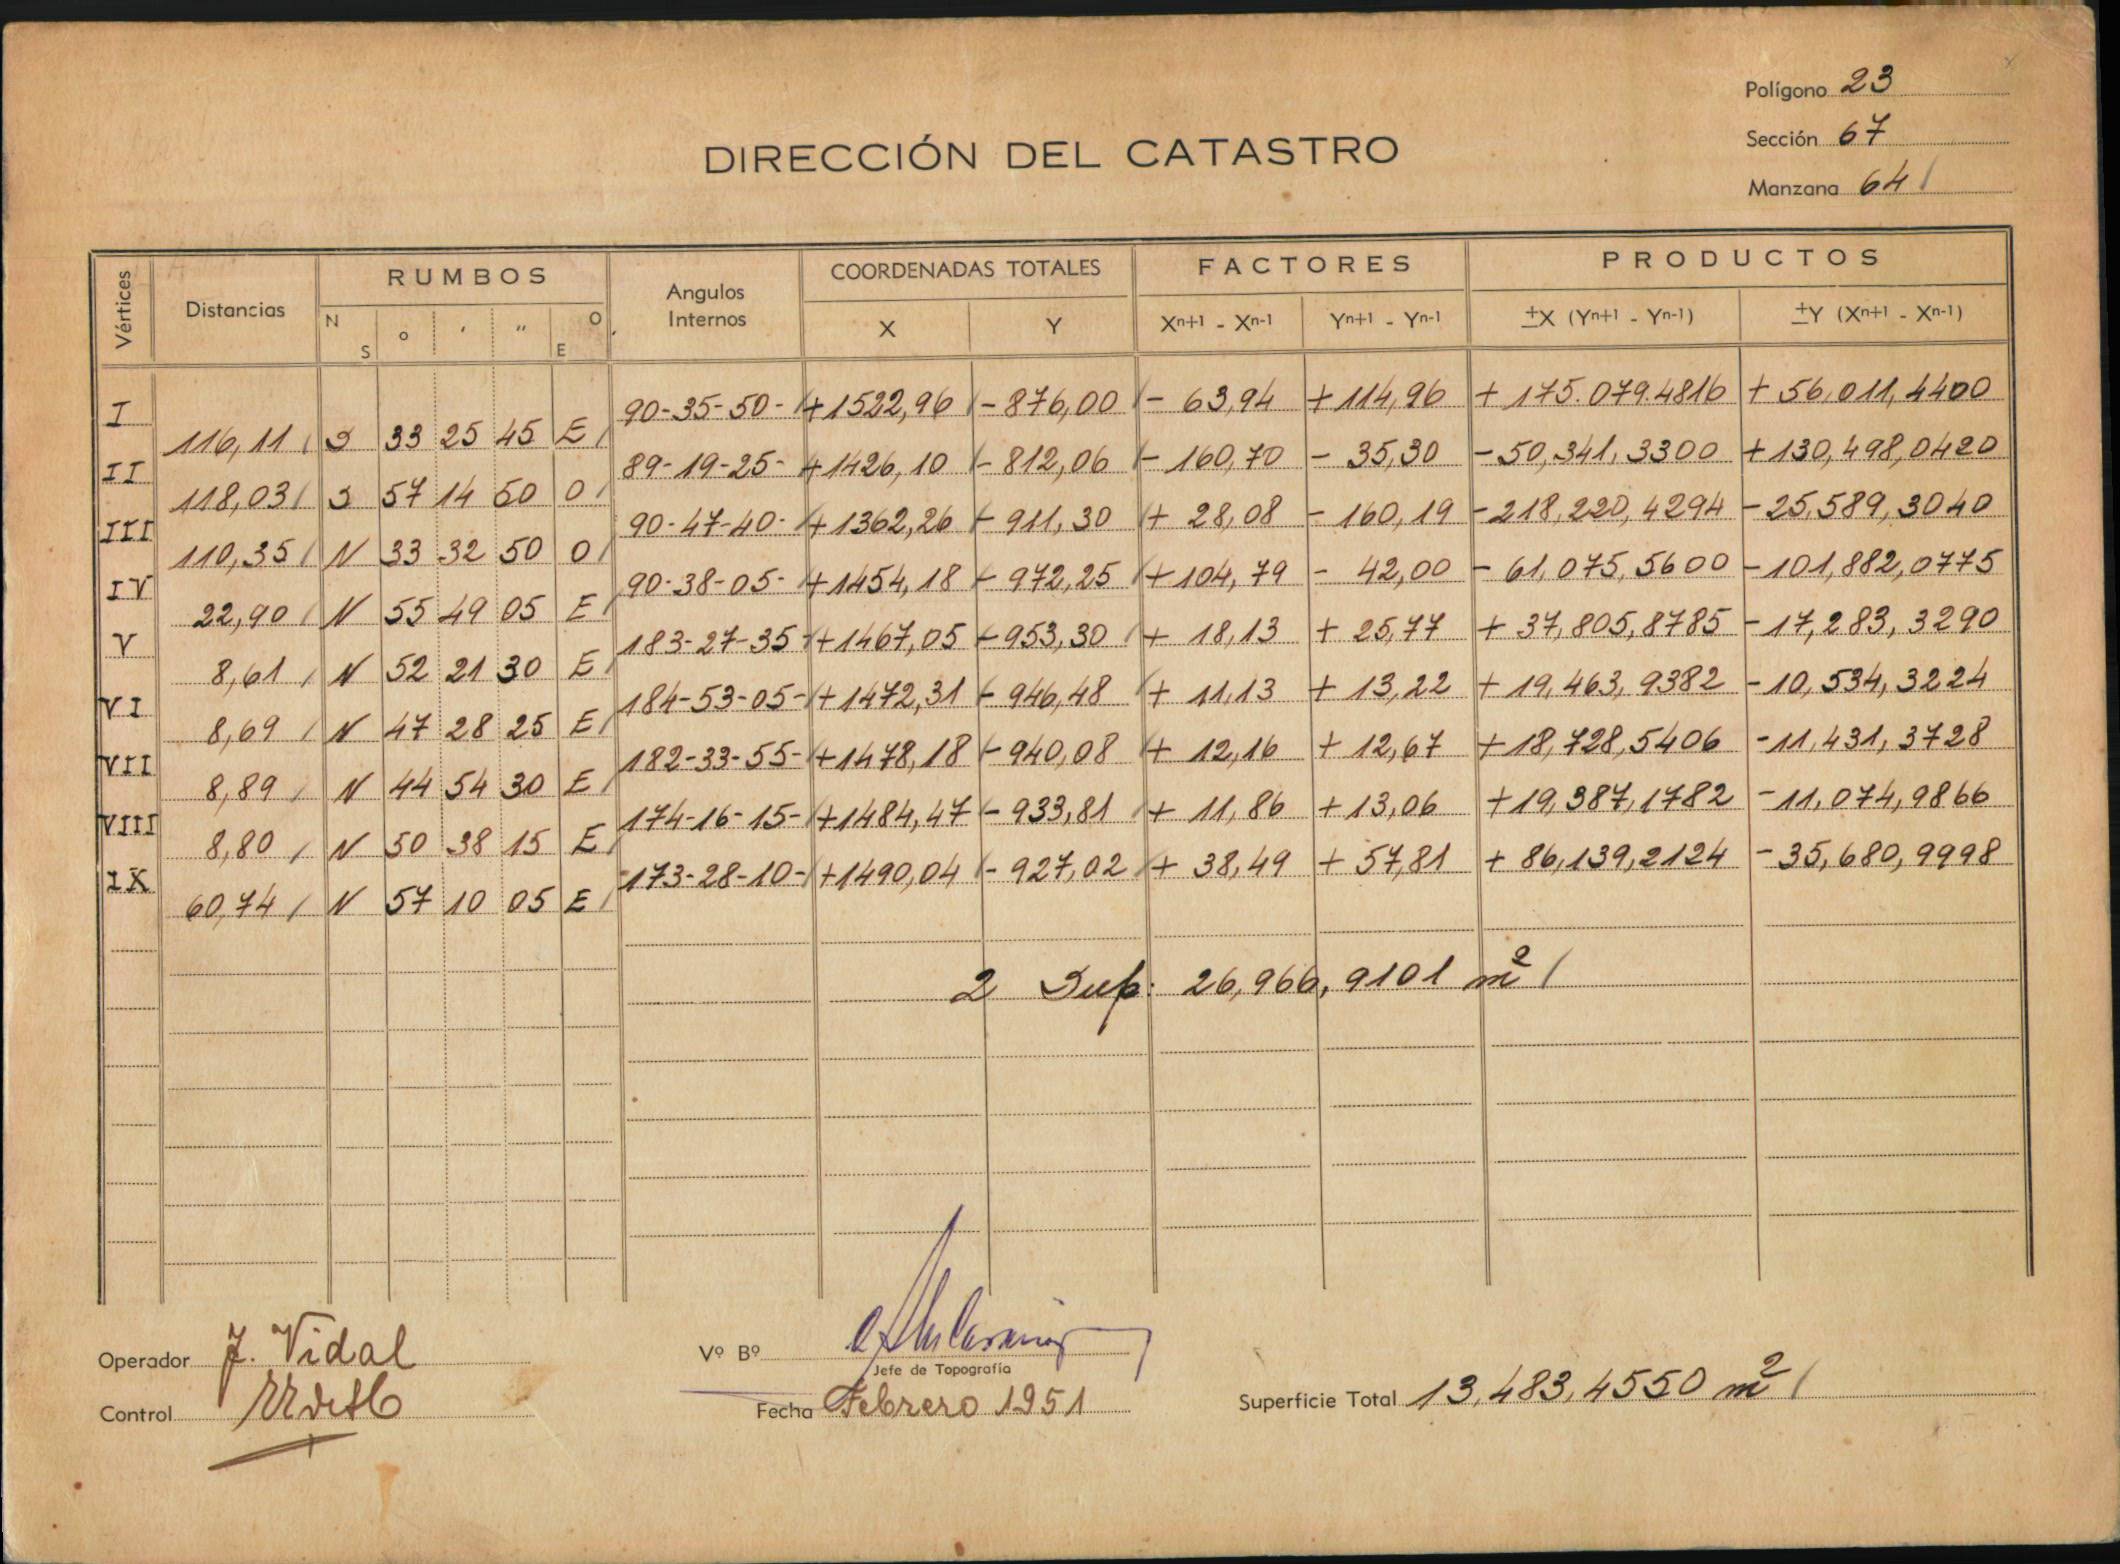 Polígono 23
Sección 67
Manzana 64
DIRECCIÓN DEL CATASTRO
Vértices Distancias RUMBOS Angulos Internos COORDENADAS TOTALES FACTORES PRODUCTOS
N S ° ′ ″ O E X Y Xn+1 - Xn-1 Yn+1 - Yn-1 ±X (Yn+1 - Yn-1) ±Y (Xn+1 - Xn-1)
I 90-35-50- +1522,96 -876,00 - 63,94 +114,96 + 175.079.4816 + 56,011,4400
116,11 S 33 25 45 E
II 89-19-25- +1426,10 -812,06 - 160,70 - 35,30 -50,341,3300 +130,498,0420
118,03 S 57 14 50 O
III 90-47-40- +1362,26 -911,30 + 28,08 - 160,19 -218,220,4294 -25,589,3040
110,35 N 33 32 50 O
IV 90-38-05- +1454,18 -972,25 +104,79 - 42,00 - 61,075,5600 -101,882,0775
22,90 N 55 49 05 E
V 183-27-35- +1467,05 -953,30 + 18,13 + 25,77 + 37,805,8785 -17,283,3290
8,61 N 52 21 30 E
VI 184-53-05- +1472,31 -946,48 + 11,13 + 13,22 + 19,463,9382 -10,534,3224
8,69 N 47 28 25 E
VII 182-33-55- +1478,18 -940,08 + 12,16 + 12,67 +18,728,5406 -11,431,3728
8,89 N 44 54 30 E
VIII 174-16-15- +1484,47 -933,81 + 11,86 +13,06 +19,387,1782 -11,074,9866
8,80 N 50 38 15 E
IX 173-28-10- +1490,04 -927,02 + 38,49 + 57,81 + 86,139,2124 -35,680,9998
60,74 N 57 10 05 E
2 Sup: 26,966,9101 m²
Operador J. Vidal Vº Bº
Jefe de Topografía
Control Fecha Febrero 1951 Superficie Total 13,483,4550 m²